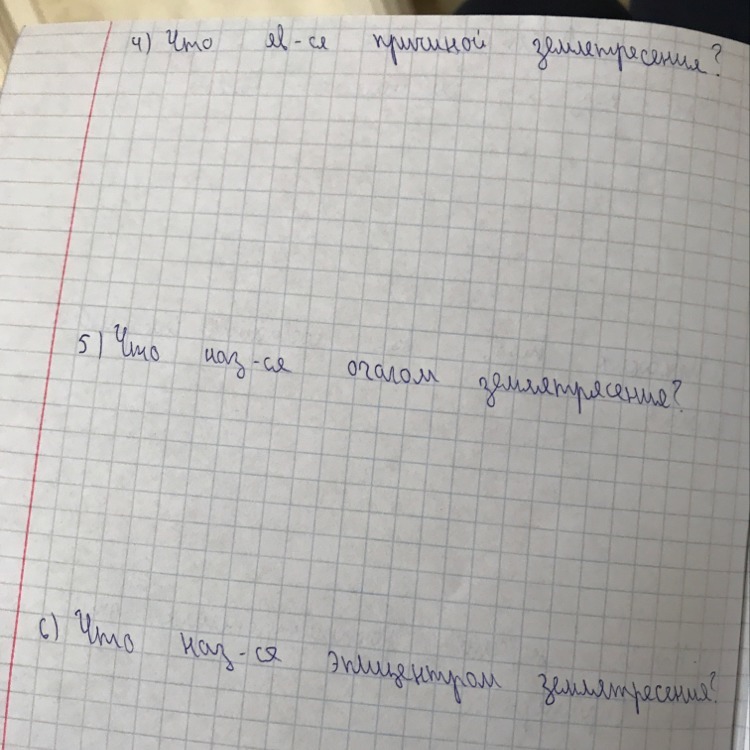 4) Что яв-ся причиной землетресения?
5) Что наз-ся очагом землятрясения?
6) Что наз-ся эпицентром землятресения?